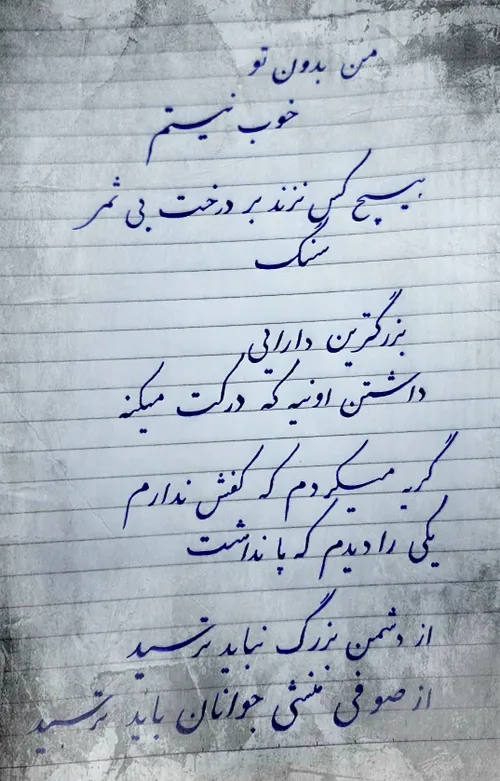 من بدون تو
خوب نیستم
هیچ کس نزند بر درخت بی ثمر
سنگ
بزرگترین دارایی
داشتن اونیه که درکت میکنه
گریه میکردم که کفش ندارم
یکی را دیدم که پا نداشت
از دشمن بزرگ نباید ترسید
از صوفی منشی جوانان باید ترسید